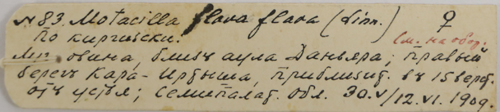 № 83. Motacilla flava flava (Linn.) ♀
по киргизски.
См. на обор.
овина, близь аула Даньяра; правый
берегъ Кара-Иртыша, приблизит. въ 15 верст.
отъ устья; семипалат. обл. 30.V/12.VI.1909.